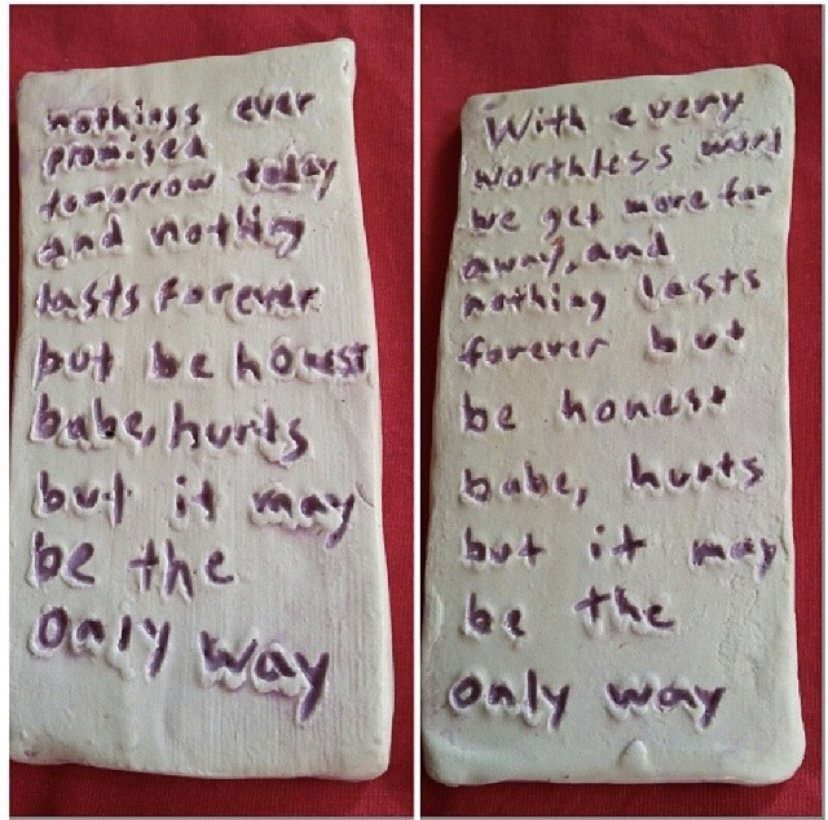 nothings ever
promised
tomorrow today
and nothing
lasts forever
but be honest
babe, hurts
but it may
be the
only way
With every
worthless word
we get more far
away, and
nothing lasts
forever but
be honest
babe, hurts
but it may
be the
only way